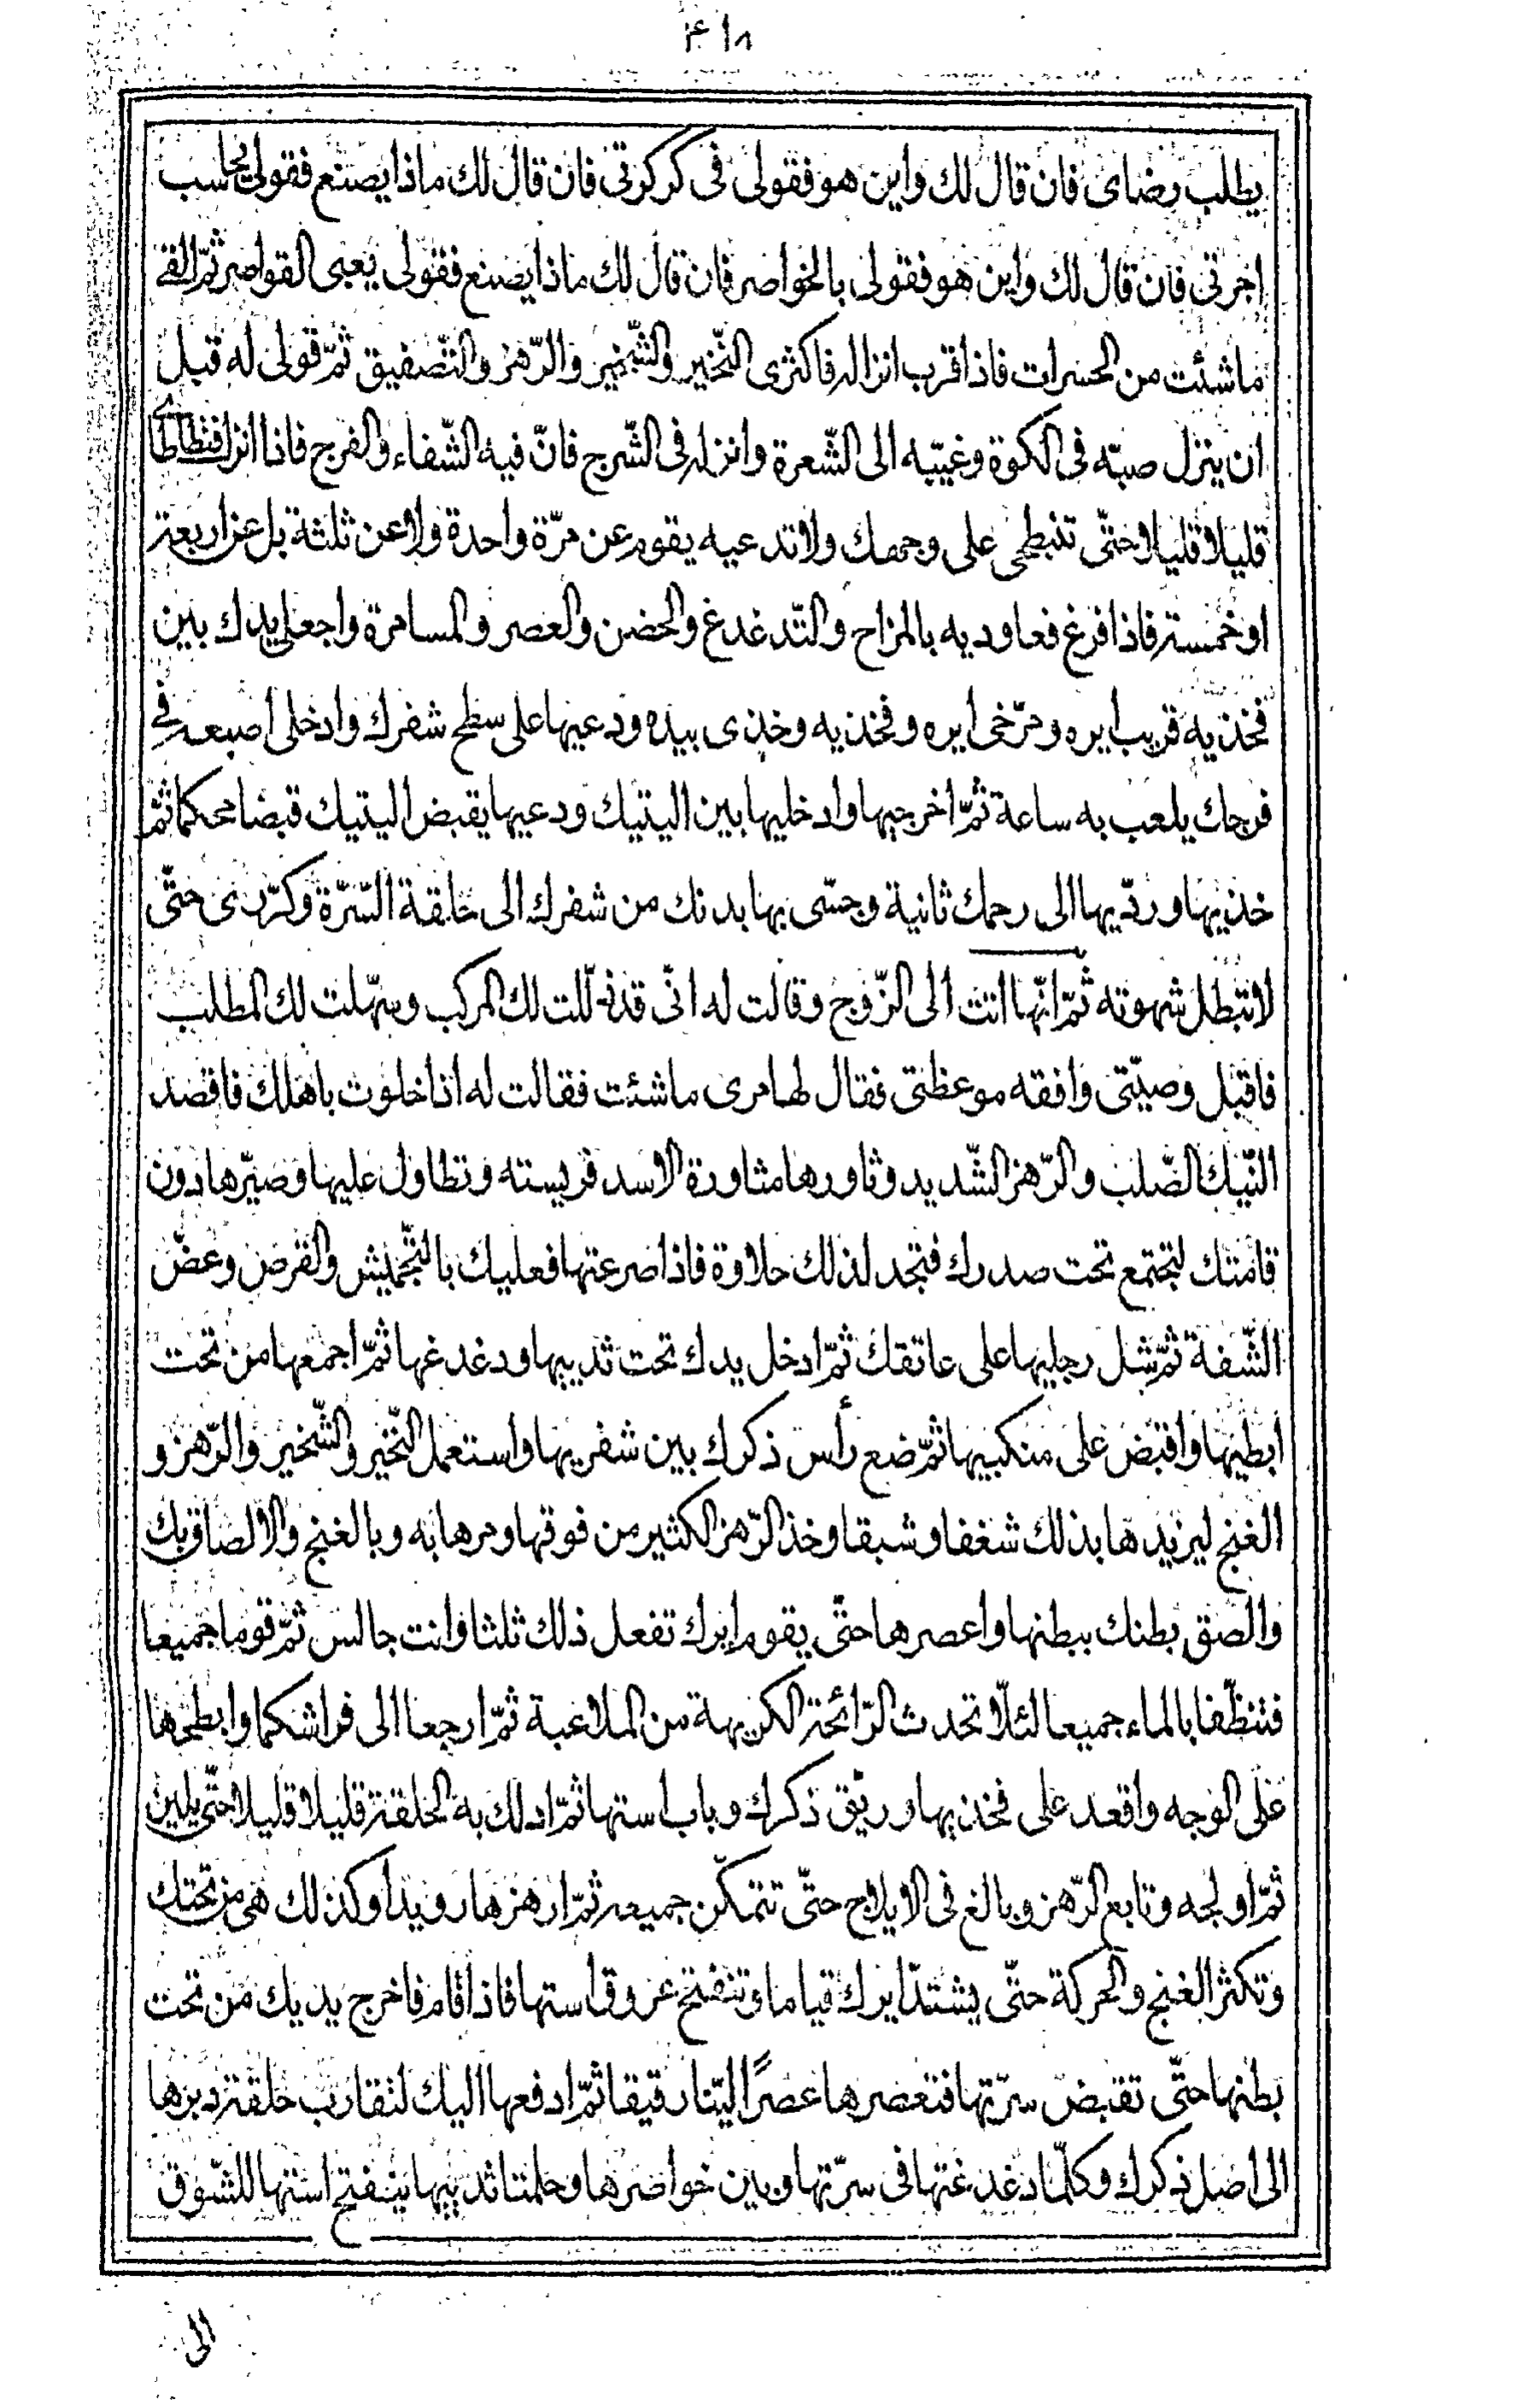 ٤١٨
يطلب رضاى فان قال لك واين هو فقولى فى كركرتى فان قال لك ماذا يصنع فقولى يحاسب
اجرتى فان قال لك واين هو فقولى بالخواصر فان قال لك ماذا يصنع فقولى يعبى القواصر ثمّ القى
ماشئت من الحسرات فاذا قرب انزاله فاكثرى النّخير والشّخير والرّهز والتّصفيق ثمّ قولى له قبل
ان ينزل صبّه فى الكوة وغيّبه الى الشّعرة وانزله فى الشّرج فانّ فيه الشّفاء والفرج فاذا انزل فتطاطاى
قليلا قليلا حتّى تنبطحى على وجهك ولا تدعيه يقوم عن مرّة واحدة ولا عن ثلثة بل عن اربعة
او خمسة فاذا فرغ فعاوديه بالمزاح والتّدغدغ والحضن والعصر والمسامرة واجعلى يدك بين
فخذيه قريب ايره ومرّخى ايره وفخذيه وخذى بيده ودعيها على سطح شفرك وادخلى اصبعه فى
فرجك يلعب به ساعة ثمّ اخرجيها وادخليها بين اليتيك ودعيها يقبض اليتيك قبضا محكما ثمّ
خذيها وردّيها الى رحمك ثانية وجسّى بها بدنك من شفرك الى حلقة السّرّة وكرّرى حتّى
لا تبطل شهوته ثمّ انّها اتت الى الزّوج وقالت له انّى قد ذلّلت لك المركب وسهّلت لك المطلب
فاقبل وصيّتى وافقه موعظتى فقال لها مرى ماشئت فقالت له اذا خلوت باهلك فاقصد
النّيك الصّلب والرّهز الشّديد وثاورها مثاورة الاسد فريسته وتطاول عليها وصيّرها دون
قامتك لتجتمع تحت صدرك فتجد لذلك حلاوة فاذا صرعتها فعليك بالتّجميش والقرص وعضّ
الشّفة ثمّ شل رجليها على عاتقك ثمّ ادخل يدك تحت ثدييها ودغدغها ثمّ اجمعها من تحت
ابطيها واقبض على منكبيها ثمّ ضع رأس ذكرك بين شفريها واستعمل النّخير والشّخير والرّهز و
الغنج ليزيدها بذلك شغفا وشبقا وخذ الرّهز الكثير من فوقها ومرها به وبالغنج والالصاق بك
والصق بطنك ببطنها واعصرها حتّى يقوم ايرك تفعل ذلك ثلثا وانت جالس ثمّ قوما جميعا
فتنظّفا بالماء جميعا لئلّا تحدث الرّائحة الكريهة من الملاعبة ثمّ ارجعا الى فراشكما وابطحها
على الوجه واقعد على فخذيها وريّق ذكرك وباب استها ثمّ ادلك به الحلقة قليلا قليلا حتّى يلين
ثمّ اولجه وتابع الرّهز وبالغ فى الايلاج حتّى تتمكّن جميعه ثمّ ارهزها رويدا وكذلك هى من تحتك
وتكثر الغنج والحركة حتّى يشتدّ ايرك قياما وتنفتح عروق استها فاذا قام فاخرج يديك من تحت
بطنها حتّى تقبض سرّتها فتعصرها عصرًا ليّنا رقيقا ثمّ ادفعها اليك لتقارب حلقة دبرها
الى اصل ذكرك وكلّما دغدغتها فى سرّتها وبين خواصرها وحلمتا ثدييها ينفتح استها للشّوق
الى